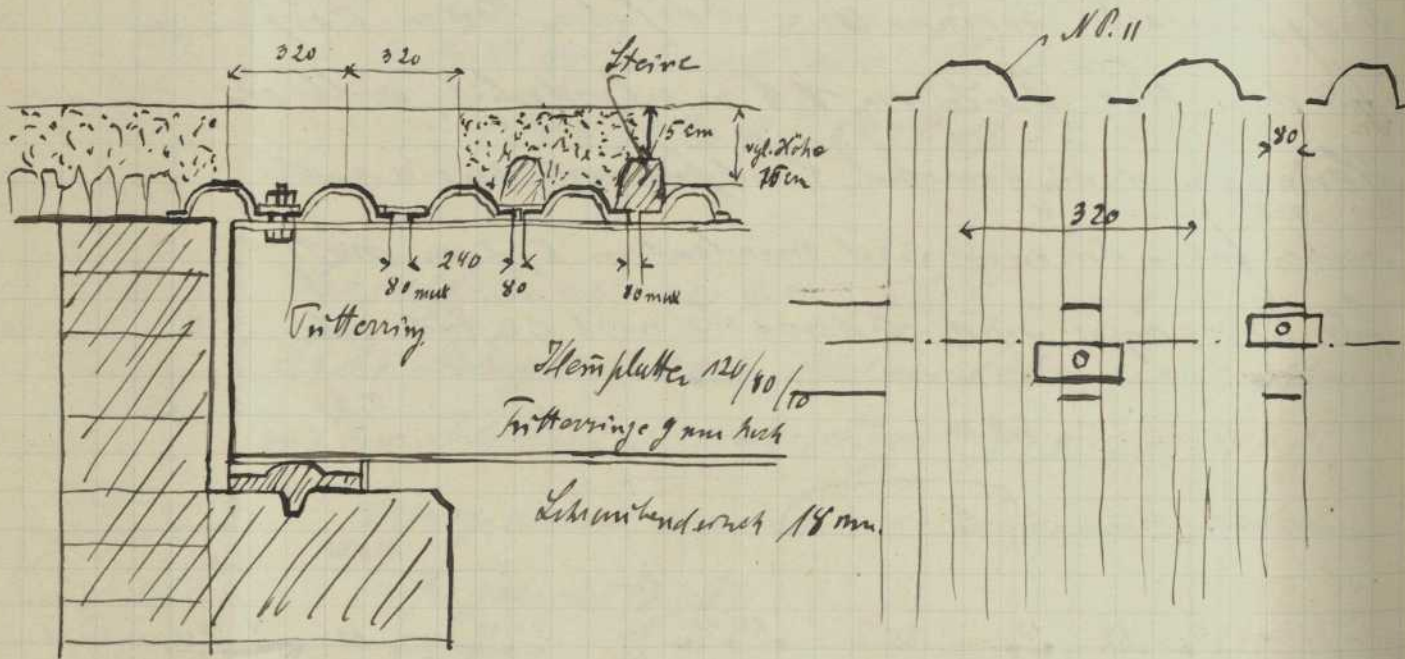 320 320
Steine
N.P. 11
15 cm
vgl. Höhe
15 cm
80
320
240
80 mm 80 80 mm
Futterring
Klemplatten 120/80/10
Futterringe 9 mm hoch
Schraubendurch 18 mm.